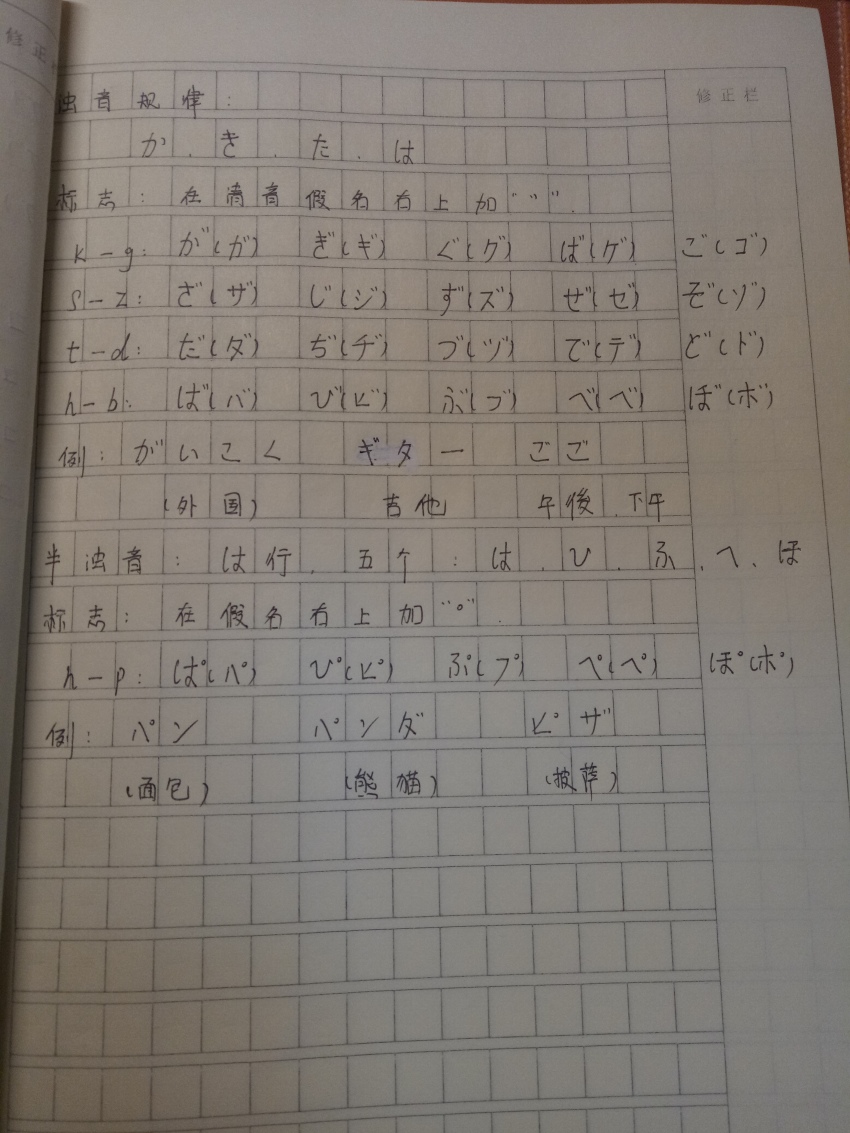 修正
浊音规律: 修正栏
か.き.た.は
标志:在清音假名右上加"゛".
k-g:が(ガ) ぎ(ギ) ぐ(グ) ば(ゲ) ご(ゴ)
s-z:ざ(ザ) じ(ジ) ず(ズ) ぜ(ゼ) ぞ(ゾ)
t-d:だ(ダ) ぢ(ヂ) づ(ヅ) で(デ) ど(ド)
h-b:ば(バ) び(ビ) ぶ(ブ) べ(ベ) ぼ(ボ)
例:がいこく ギター ごご
(外国) 吉他 午後.下午
半浊音:は行.五个:は.ひ.ふ.へ.ほ
标志:在假名右上加"°".
h-p:ぱ(パ) ぴ(ピ) ぷ(プ) ぺ(ペ) ぽ(ポ)
例:パン パンダ ピザ
(面包) (熊猫) (披萨)